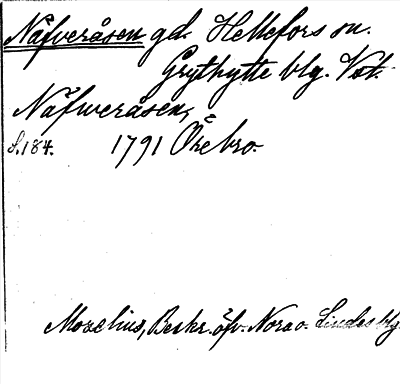 Näfveråsen gd. Hellefors sn.
Grythytte blg. Vst.
Näfweråsen,
S. 184. 1791 Örebro.
Morelius, Beskr. öfv. Nora o. Lindes blg.